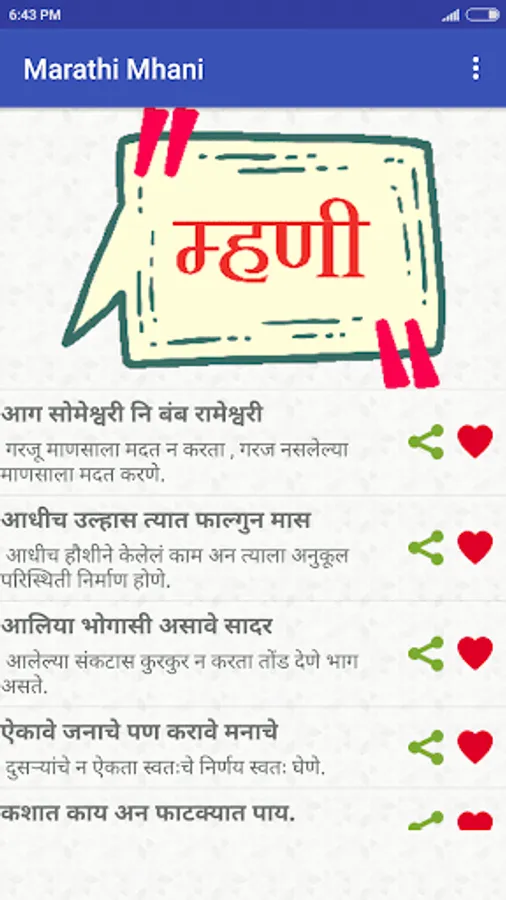 6:43 PM
Marathi Mhani
म्हणी
आग सोमेश्वरी नि बंब रामेश्वरी
गरजू माणसाला मदत न करता , गरज नसलेल्या
माणसाला मदत करणे.
आधीच उल्हास त्यात फाल्गुन मास
आधीच हौशीने केलेलं काम अन त्याला अनुकूल
परिस्थिती निर्माण होणे.
आलिया भोगासी असावे सादर
आलेल्या संकटास कुरकुर न करता तोंड देणे भाग
असते.
ऐकावे जनाचे पण करावे मनाचे
दुसऱ्यांचे न ऐकता स्वतःचे निर्णय स्वतः घेणे.
कशात काय अन फाटक्यात पाय.